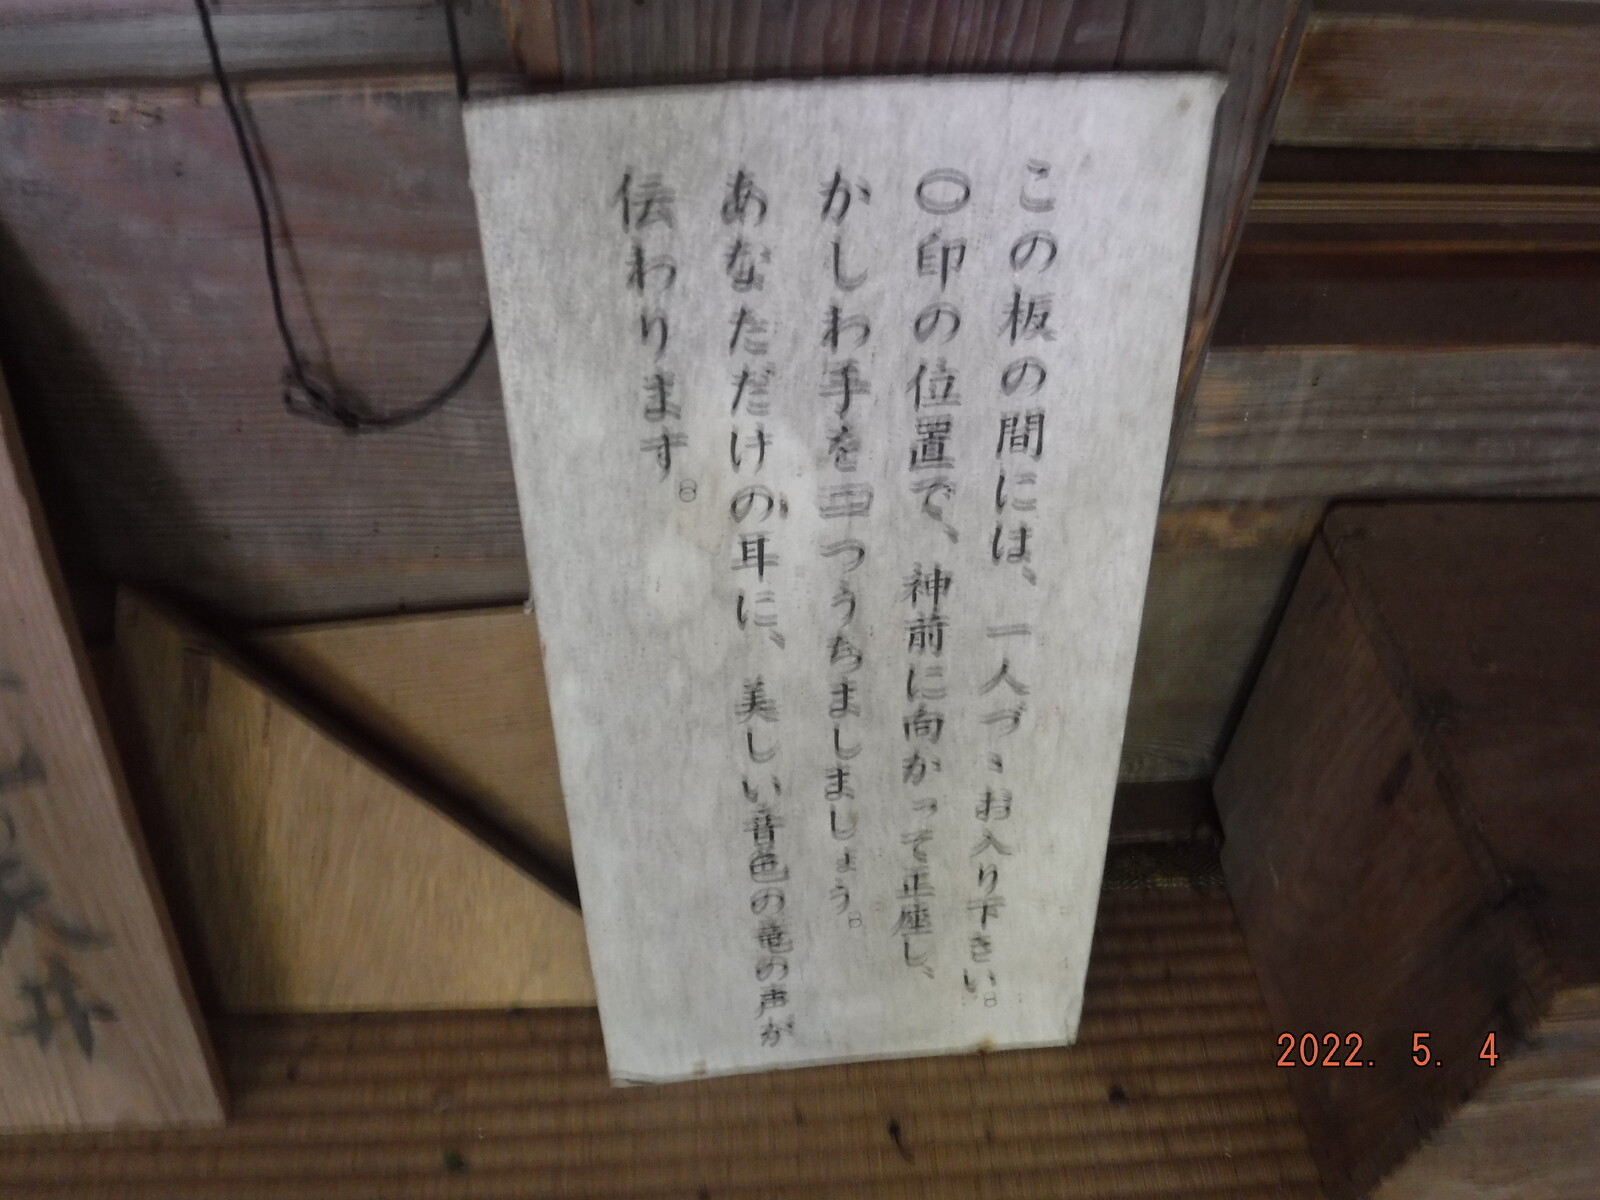 この板の間には、一人づゝお入り下きい。
〇印の位置で、神前に向かって正座し、
かしわ手を二つうちましましょう。
あなただけの耳に、美しい音色の竜の声が
伝わります。
井
2022. 5. 4